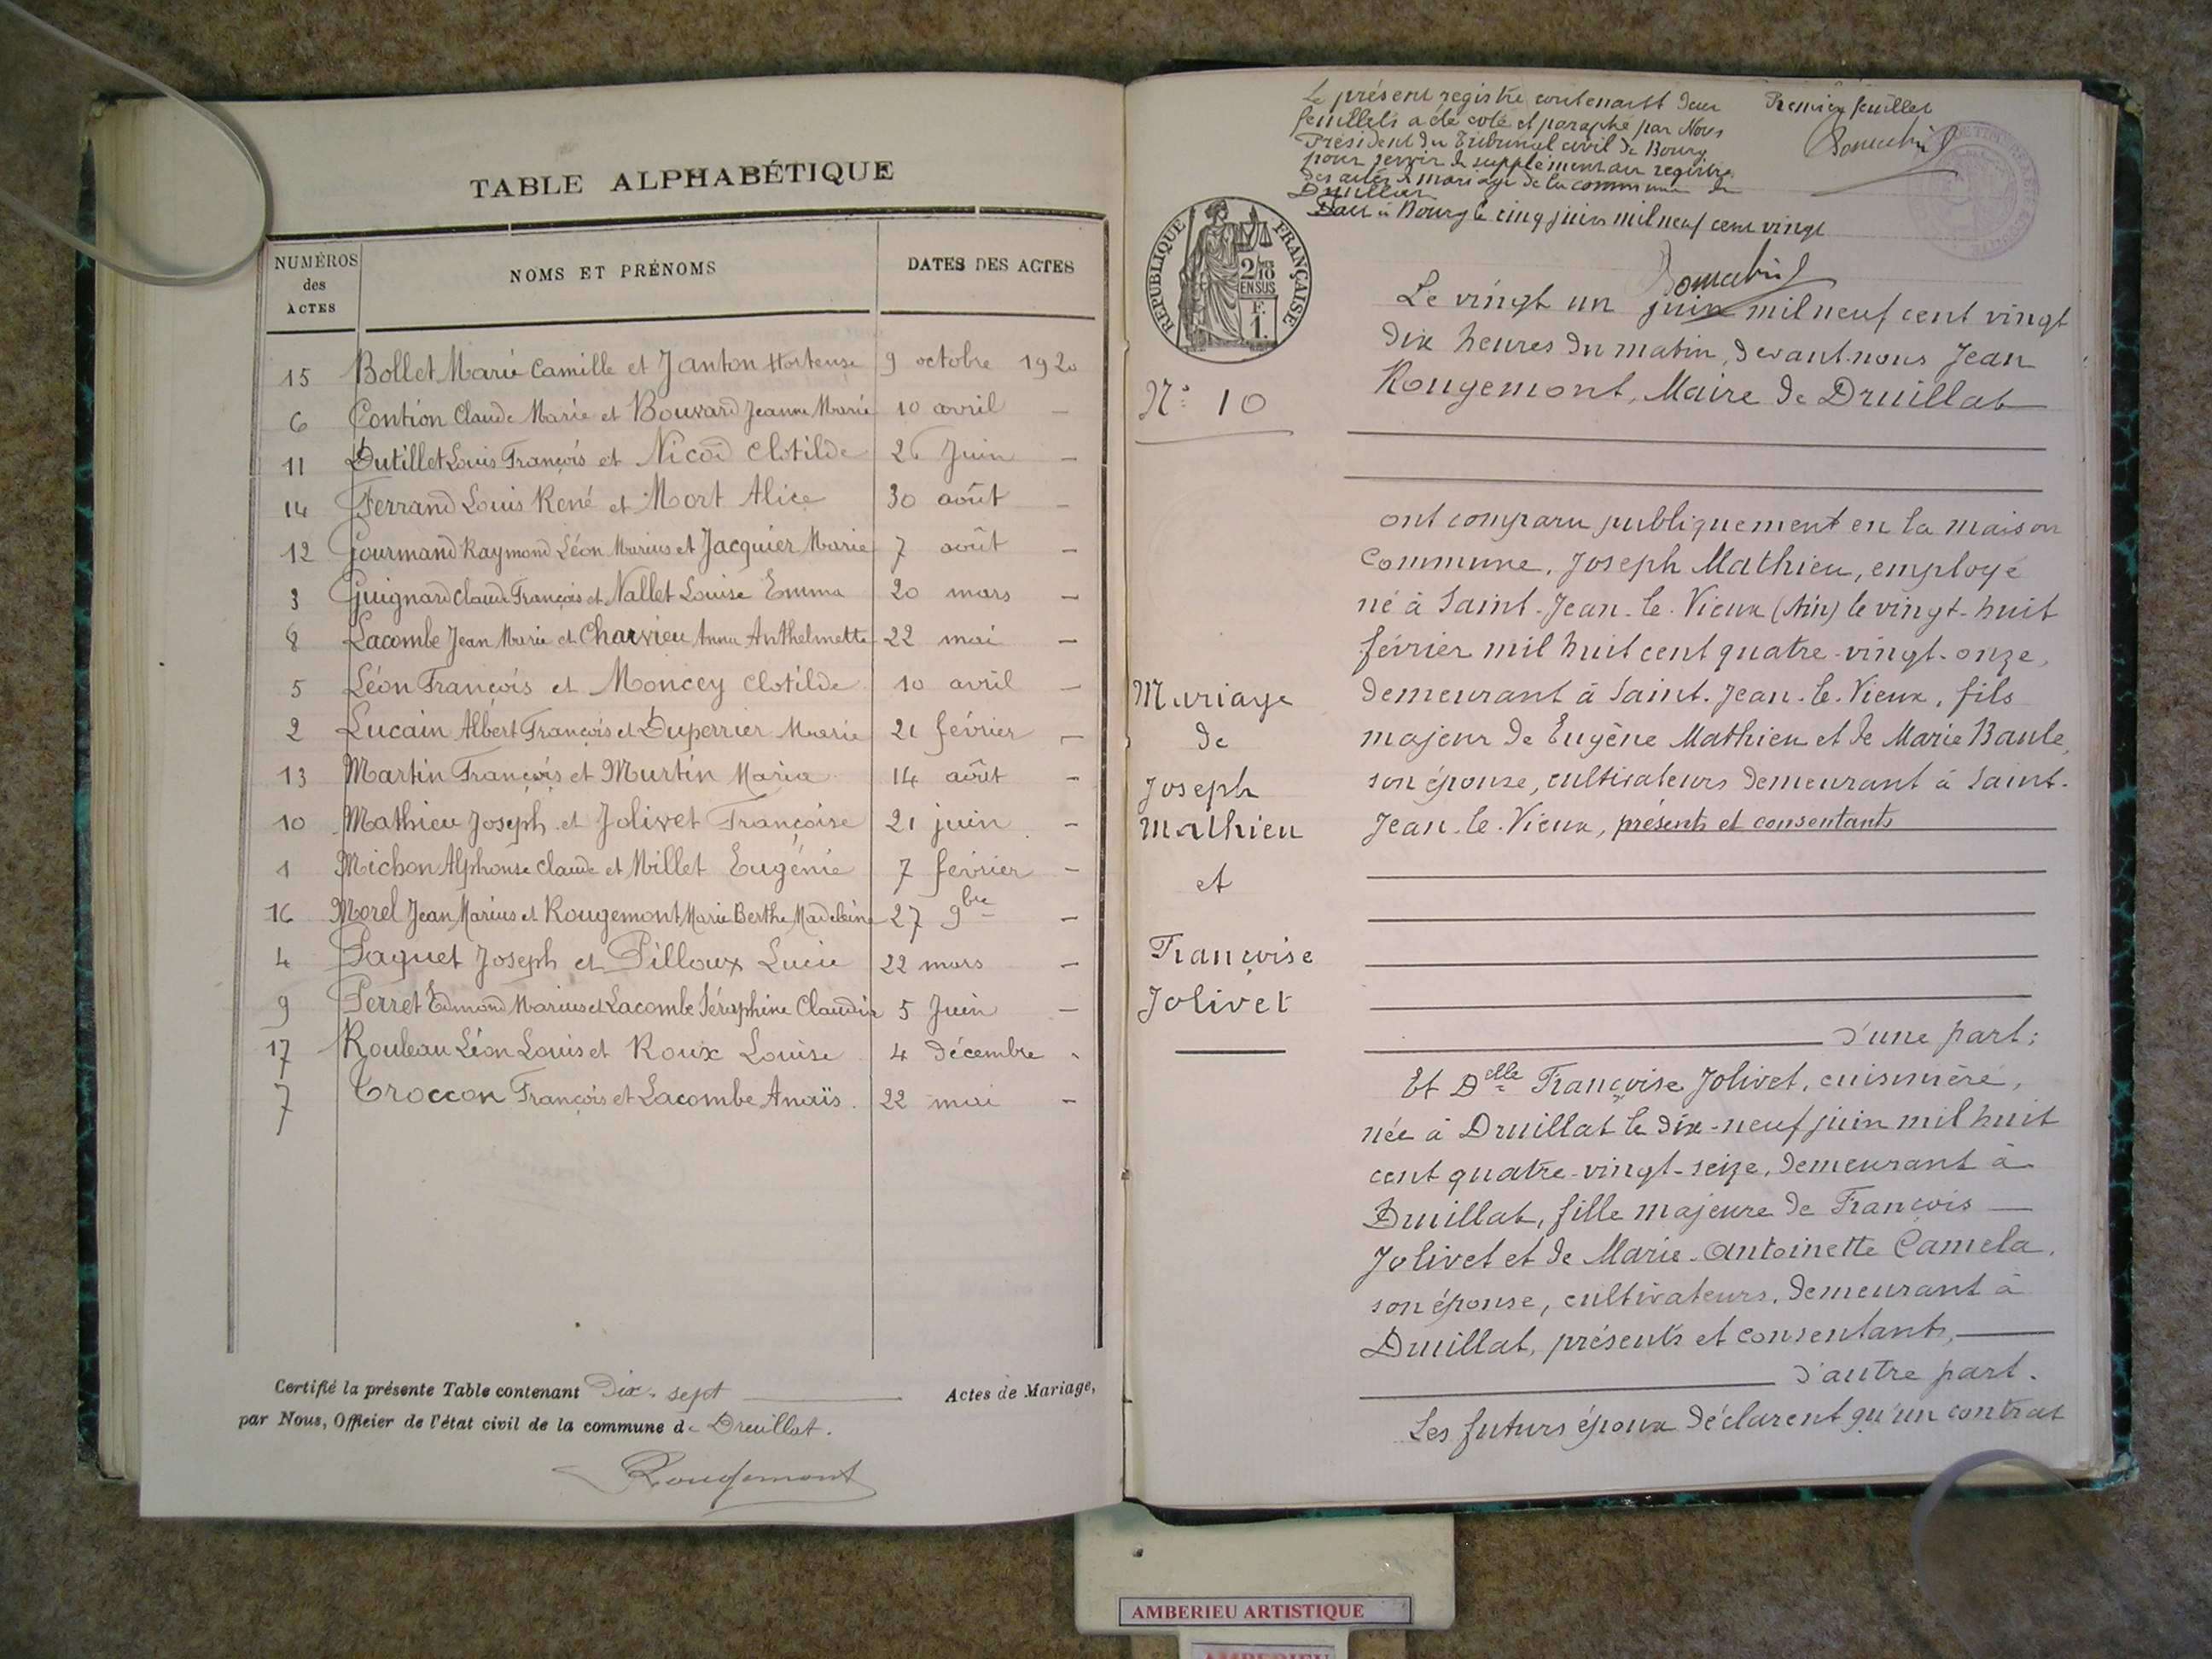 TABLE ALPHABÉTIQUE
NUMÉROS des ACTES NOMS ET PRÉNOMS DATES DES ACTES
15 Bollet Marie Camille et Janton Hortense 9 octobre 1920
6 Contion Claude Marie et Bouvard Jeanne Marie 10 avril —
11 Dutillet Louis François et Nicod Clotilde 26 Juin —
14 Ferrand Louis René et Mort Alice 30 août —
12 Gourmand Raymond Léon Marius et Jacquier Marie 7 août —
3 Guignard Claude François et Nallet Louise Emma 20 mars —
8 Lacombe Jean Marie et Charvieu Anna Anthelmette 22 mai —
5 Léon François et Moncey Clotilde 10 avril —
2 Lucain Albert François et Duperrier Marie 21 février —
13 Martin François et Murtin Maria 14 août —
10 Mathieu Joseph et Jolivet Françoise 21 juin —
1 Michon Alphonse Claude et Millet Eugénie 7 février —
16 Morel Jean Marius et Rougemont Marie Berthe Madeleine 27 9bre —
4 Paquet Joseph et Pilloux Lucie 22 mars —
9 Perret Edmond Marius et Lacombe Séraphine Claudia 5 Juin —
17 Rouleau Léon Louis et Roux Louise 4 décembre -
7 Troccon François et Lacombe Anaïs. 22 mai —
Certifié la présente Table contenant Dix-sept Actes de Mariage,
par Nous, Officier de l'état civil de la commune de Druillat.
Rougemont
Le présent registre contenant deux
feuillets a été coté et paraphé par Nous
Président du Tribunal civil de Bourg
pour servir de supplément au registre
des actes de mariage de la commune de
Druillat
Fait à Bourg le cinq juin mil neuf cent vingt
Premier feuillet
RÉPUBLIQUE FRANÇAISE
2/10
EN SUS
F.
1.
N° 10
Mariage
de
Joseph
Mathieu
et
Françoise
Jolivet
Le vingt un juin mil neuf cent vingt
dix heures du matin, devant nous Jean
Rougemont, Maire de Druillat
ont comparu publiquement en la maison
Commune, Joseph Mathieu, employé
né à Saint-Jean-le-Vieux (Ain) le vingt-huit
février mil huit cent quatre-vingt-onze,
demeurant à Saint-Jean-le-Vieux, fils
majeur de Eugène Mathieu et de Marie Baule,
son épouse, cultivateurs demeurant à Saint-
Jean-le-Vieux, présents et consentants
d'une part;
Et Delle Françoise Jolivet, cuisinière,
née à Druillat le dix-neuf juin mil huit
cent quatre-vingt-seize, demeurant à
Druillat, fille majeure de François
Jolivet et de Marie-Antoinette Camela,
son épouse, cultivateurs, demeurant à
Druillat, présents et consentants,
d'autre part.
Les futurs époux déclarent qu'un contrat
AMBERIEU ARTISTIQUE
AMBERIEU